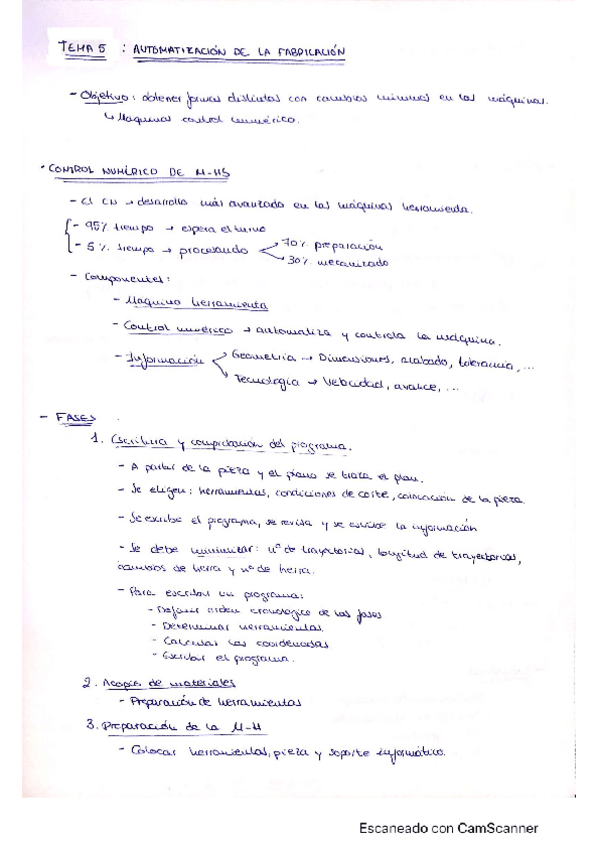 TEMA 5 : AUTOMATIZACIÓN DE LA FABRICACIÓN
- Objetivo: obtener formas distintas con cambios mínimos en las máquinas.
↳ Maquinas control numérico.
· CONTROL NUMÉRICO DE M-HS
- El CN → desarrollo más avanzado en las máquinas herramienta.
- 95% tiempo → espera el turno
- 5% tiempo → procesando
70% preparación
30% mecanizado
- Componentes:
- Maquina herramienta
- Control numérico → automatiza y controla la máquina.
- Información
Geometria → Dimensiones, acabado, tolerancia, ...
Tecnología → Velocidad, avance, ...
- FASES
1. Escritura y comprobación del programa.
- A partir de la pieza y el plano se traza el plan.
- Se eligen: herramientas, condiciones de corte, colocación de la pieza.
- Se escribe el programa, se revisa y se escribe la información
- Se debe minimizar: nº de trayectorias, longitud de trayectorias,
cambios de herra y nº de herra.
- Para escribir un programa:
- Definir orden cronologico de las fases
- Determinar herramientas.
- Calcular las coordenadas
- Escribir el programa.
2. Acopio de materiales
- Preparación de herramientas
3. Preparación de la M-H
- Colocar herramientas, pieza y soporte informático.
Escaneado con CamScanner